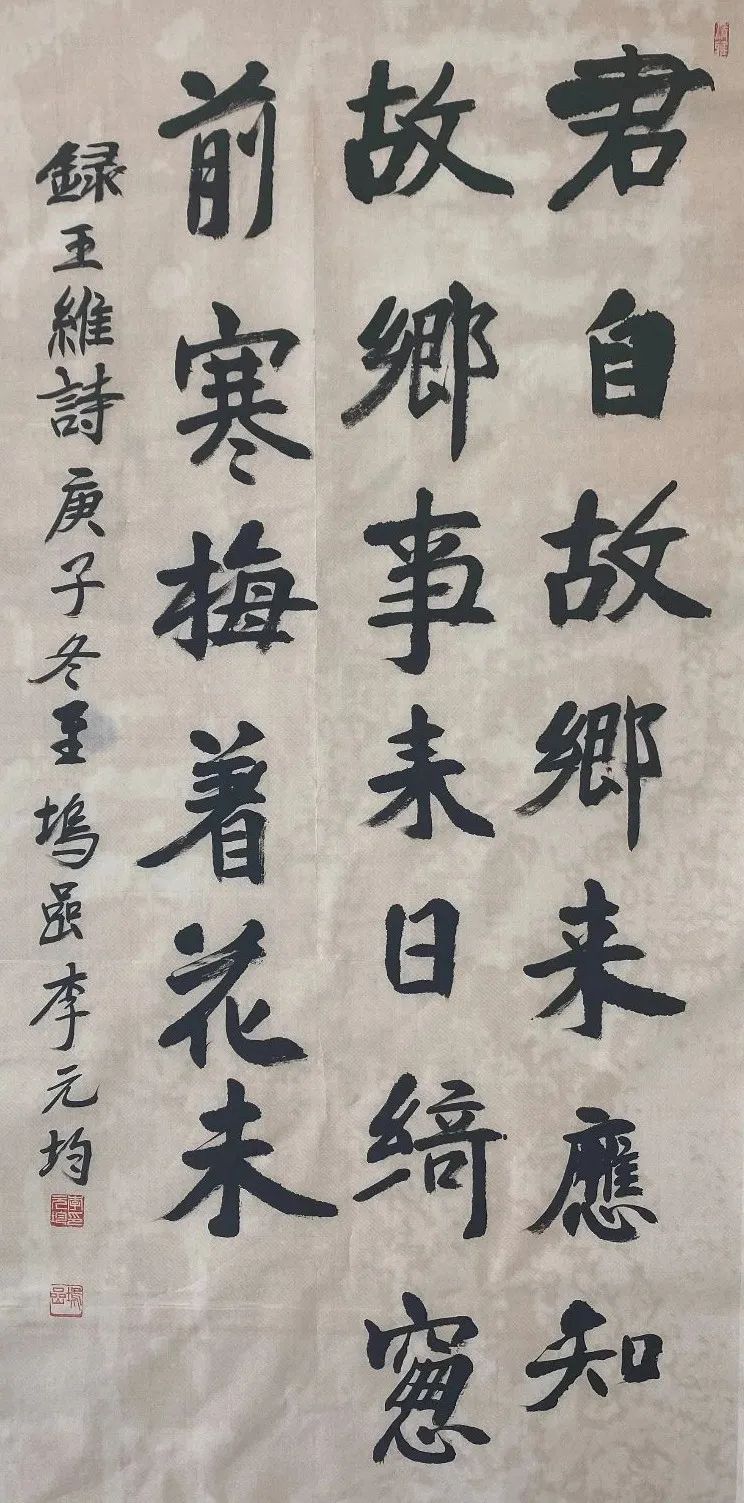 君自故鄉来應知
故鄉事来日綺窻
前寒梅着花未
録王維詩庚子冬至塢嵒李元均